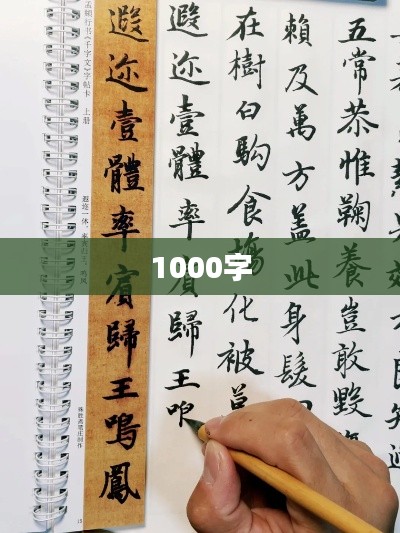 孟頫行书《千字文》字帖卡 上册
遐迩一体，率宾归王。鸣凤
遐迩壹體率賓歸王鳴鳳
遐迩壹體率賓歸王
在樹白駒食場化被
賴及萬方蓋此身髮
五常恭惟鞠養豈敢毀
1000字